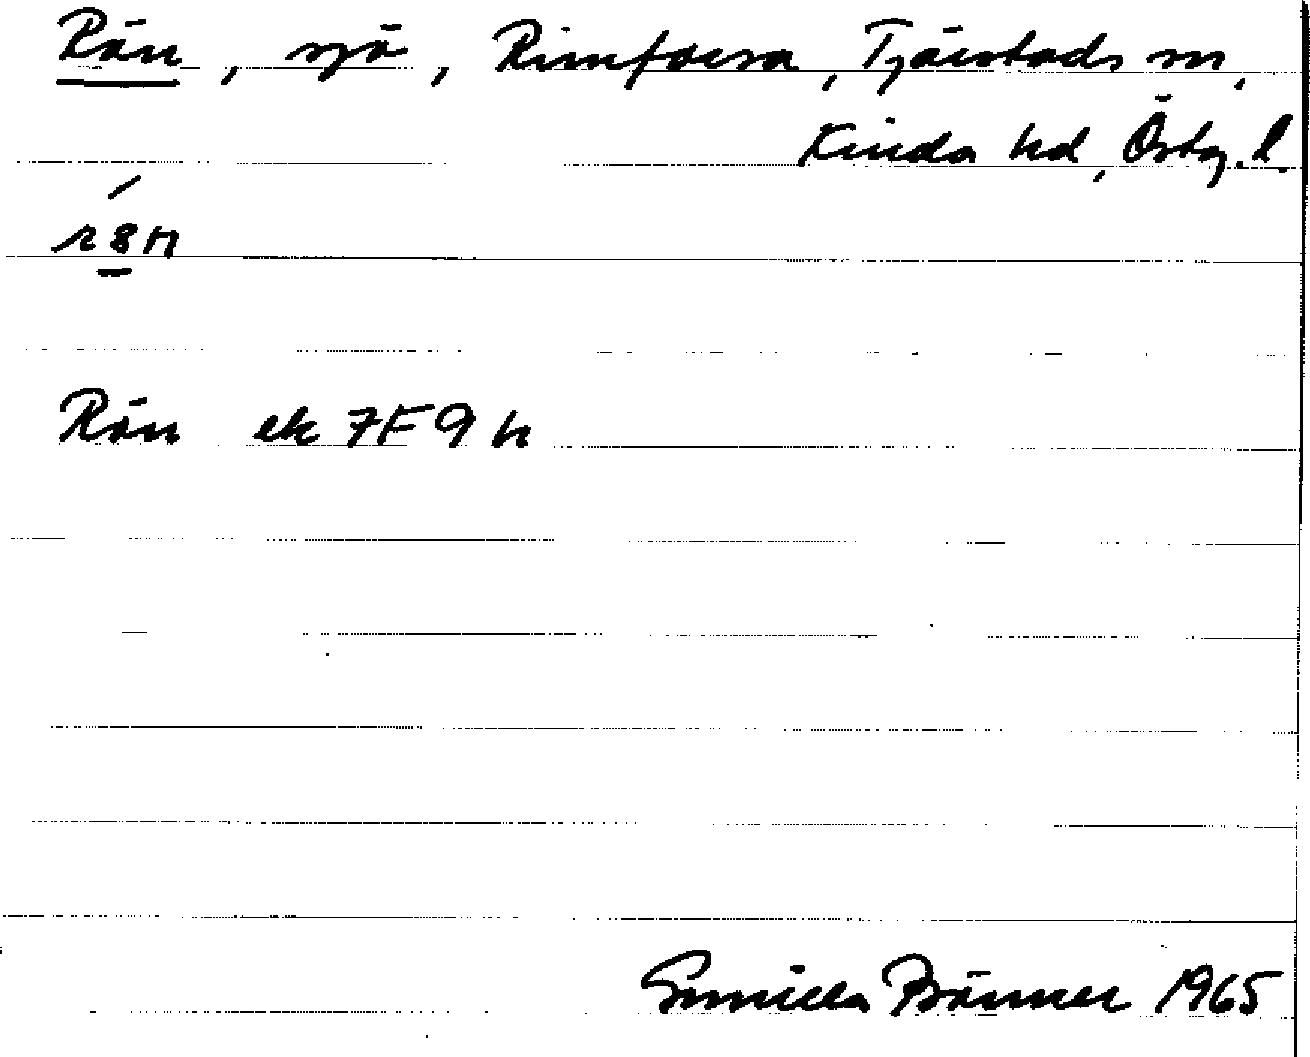 Rön, sjö, Rimforsa, Tjärstads sn,
Kinda hd, Östg. l.
Rön ek 7F9h
Gunilla 1965